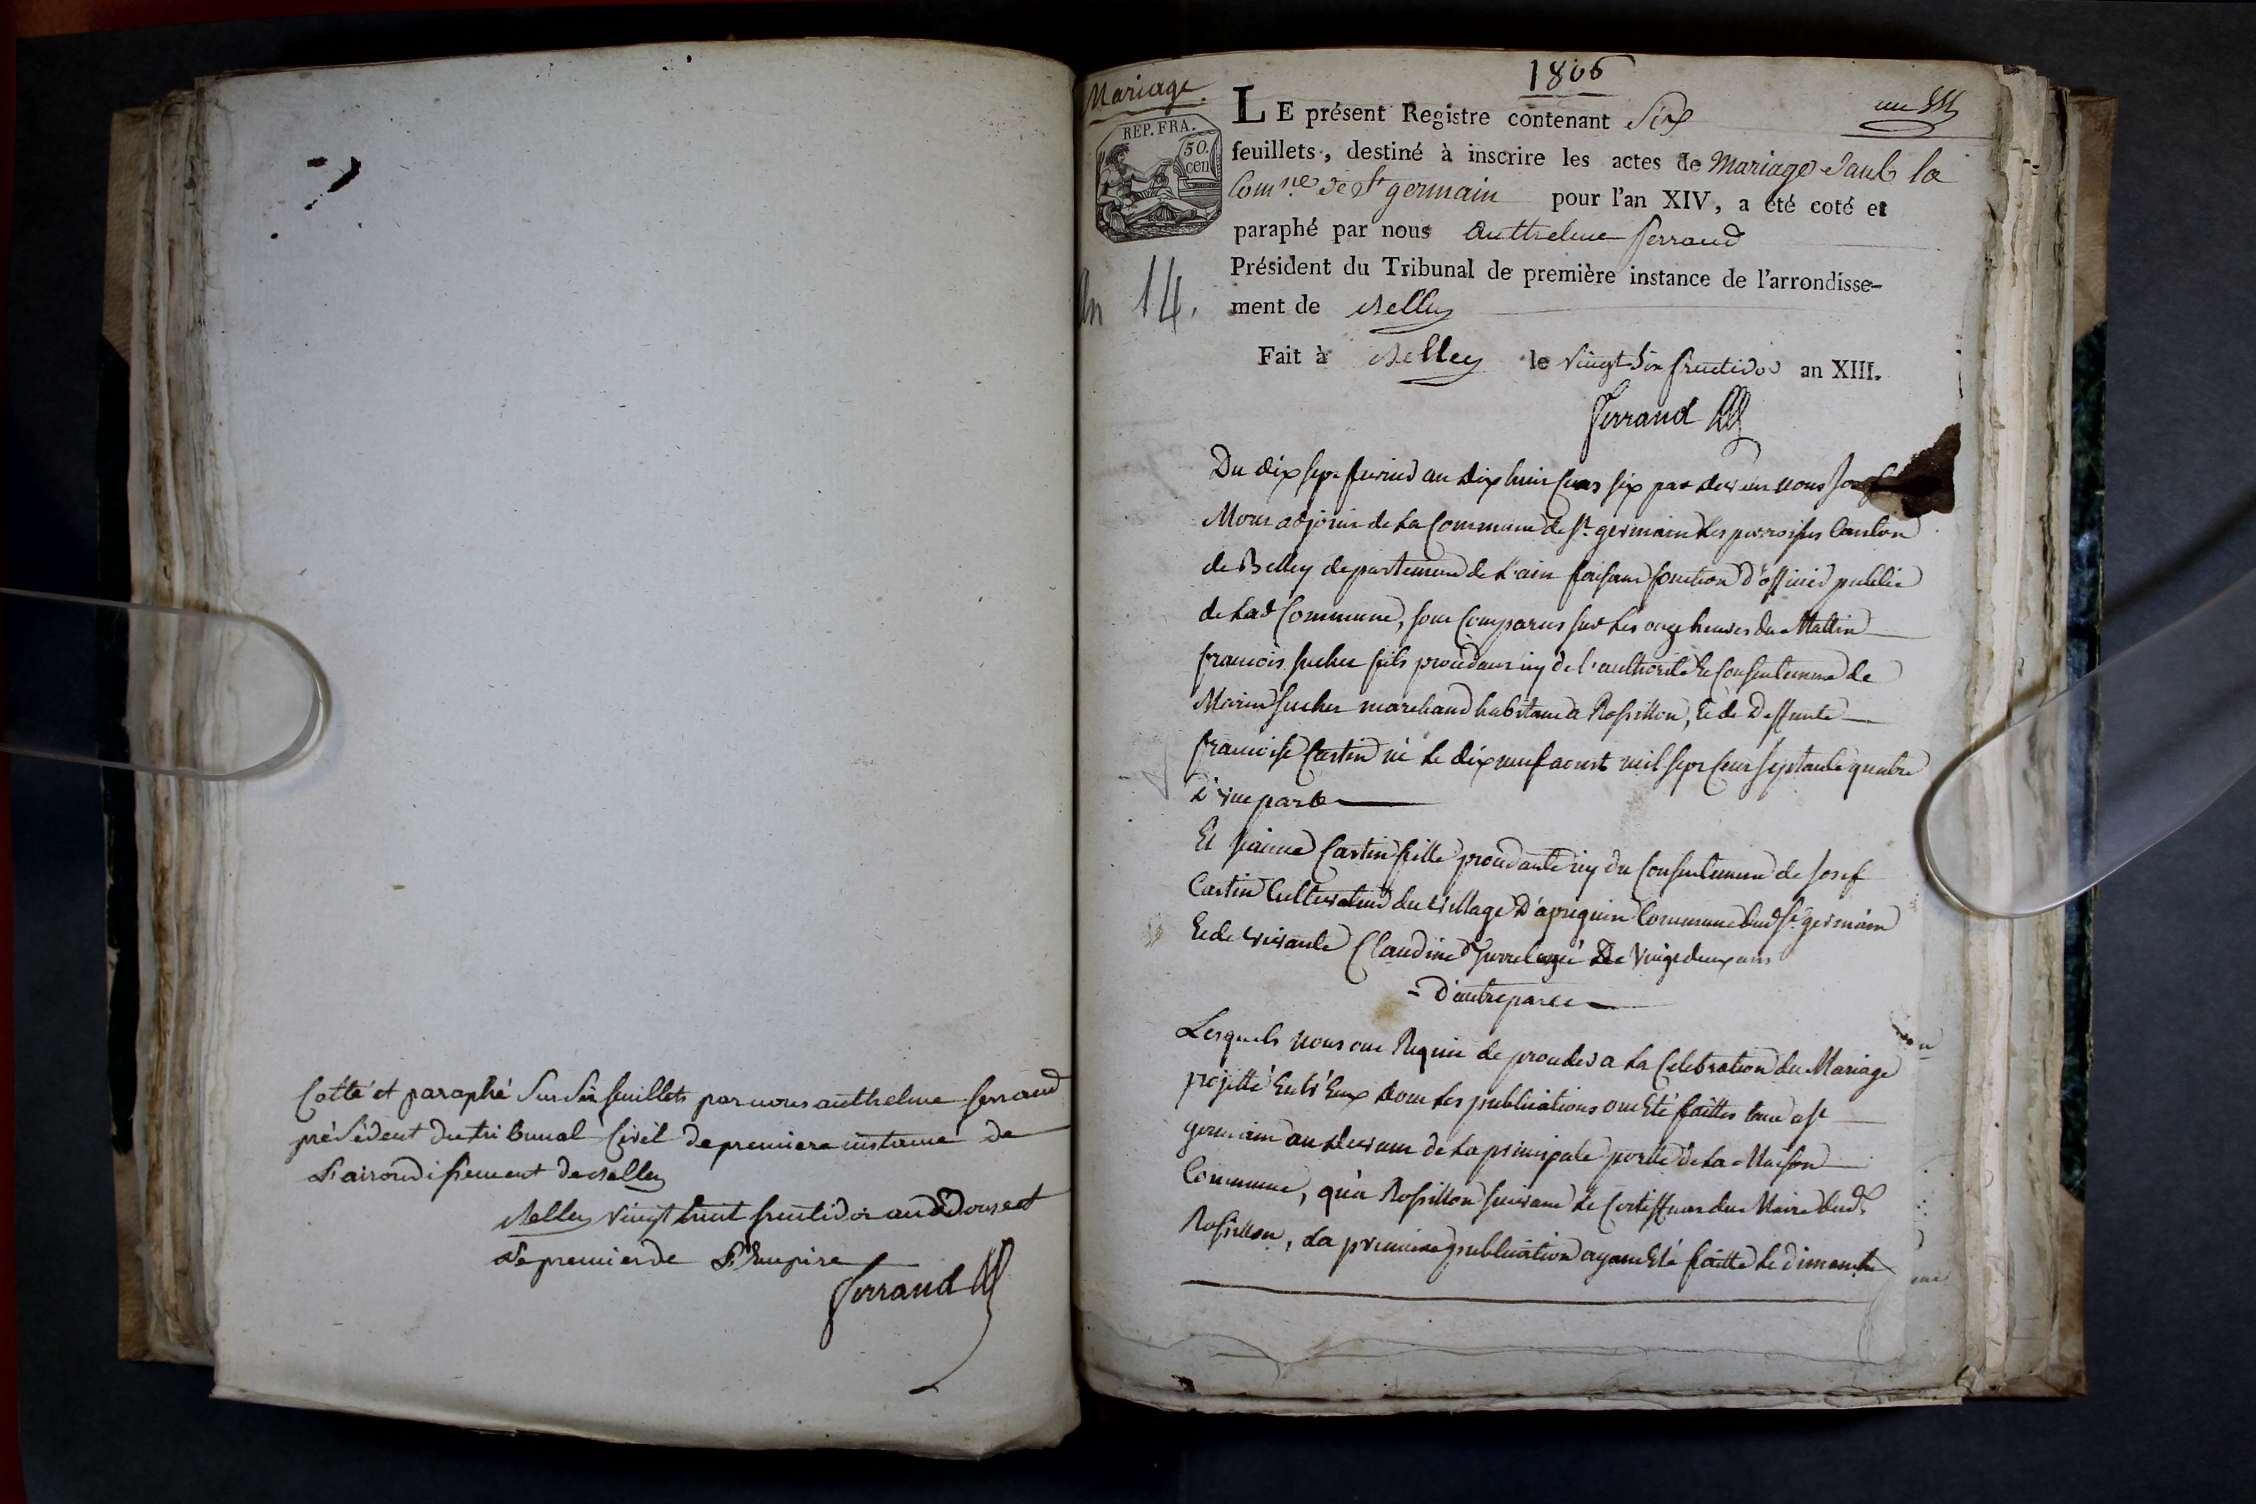 Cotté et paraphé sur six feuillets par nous anthelme ferrand
président du tribunal Civil de premiere instance de
L'arrondissement de Belley
Belley vingt huit fructidor an douze et
Le premier de L'Empire
Ferrand
Mariage.
1806
REP. FRA.
50.
cen
an 14.
LE présent Registre contenant Six
un
feuillets, destiné à inscrire les actes de Mariage dans la
Comne de St germain pour l'an XIV, a été coté et
paraphé par nous Anthelme ferrand
Président du Tribunal de première instance de l'arrondisse-
ment de Belley
Fait à Belley le vingt six fructidor an XIII.
Ferrand
Du dix sept fevrier an dix huit Cens six par devant nous Josef
adjoint de La Commune de St germain Les paroisses Canton
de Belley departement de L'ain faisant fonction d'officier public
de Lad Commune, sont Comparus sur Les onze heures du Mattin
francois sucher fils procedant icy de l'authorité Et Consentement de
Marin sucher marchand habitant a Rossillon, Et de Deffunte
francoise Cartin né Le dix neuf aoust mil sept Cens septante quatre
d'une part
Et Jeanne Cartin fille procedante icy du Consentement de Josef
Cartin Cultivateur du village D'apregnin Commune dud St germain
Et de vivante Claudine agée De vingt deux ans
- D'autre part
Lesquels nous ont Requis de proceder a La Celebration du Mariage
projetté Entr'Eux dont Les publications ont Eté faittes tant a St
germain au devant de La principale porte de La Maison
Commune, qu'a Rossillon suivant Le Certifficat du Maire dud
Rossillon, La premiere publication ayant Eté faitte Le dimanche